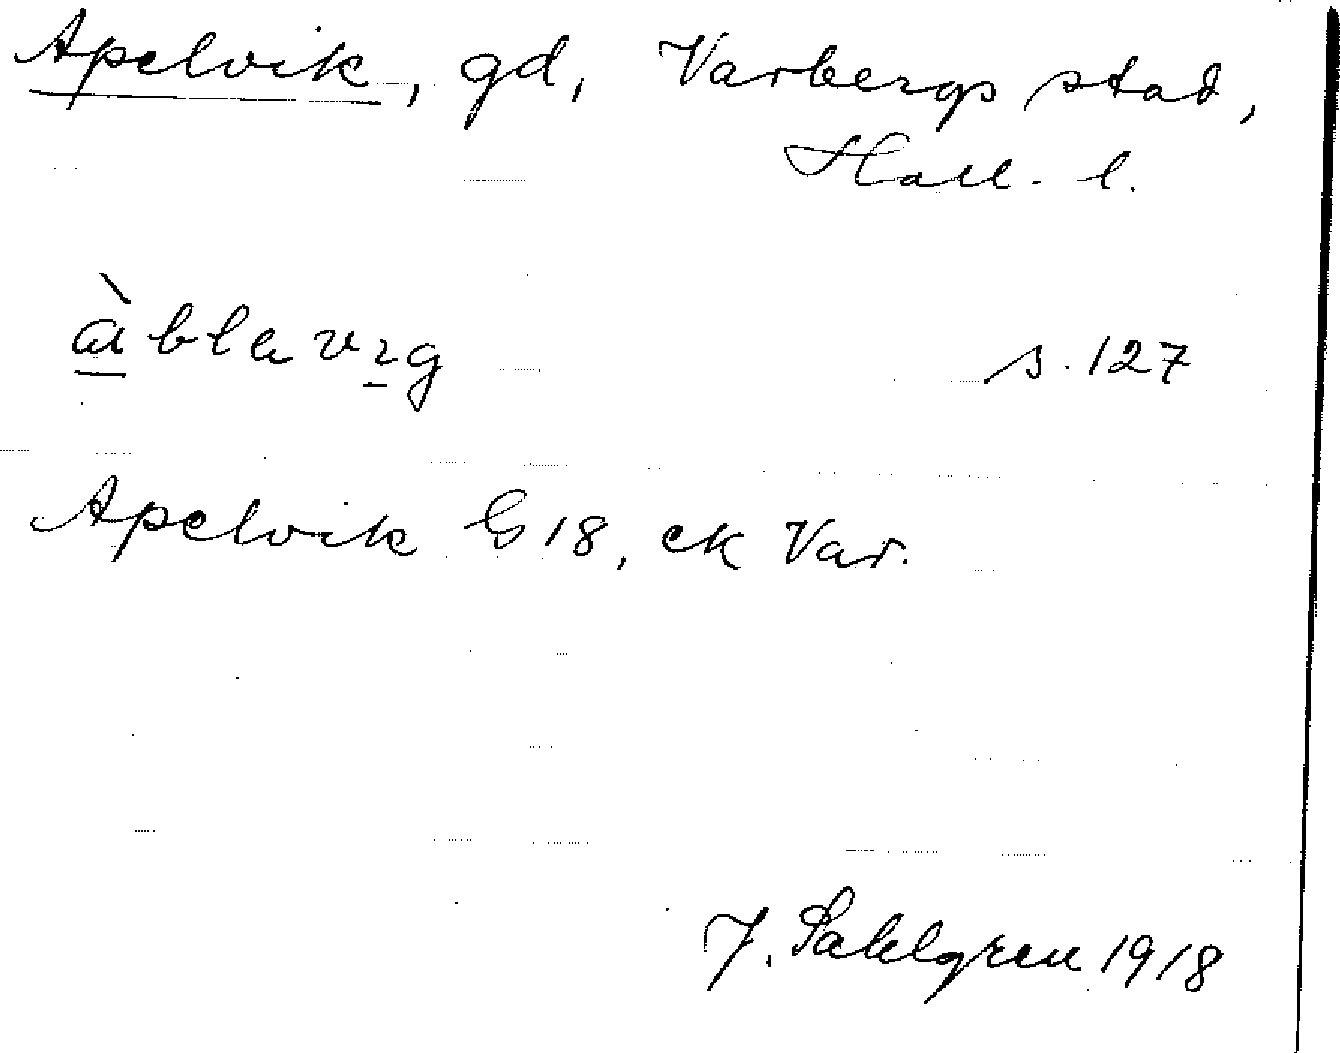 Apelvik, gd, Varbergs stad,
Hall. l.
àblavıg s. 127
Apelvik G 18, ek Var.
J. Sahlgren 1918